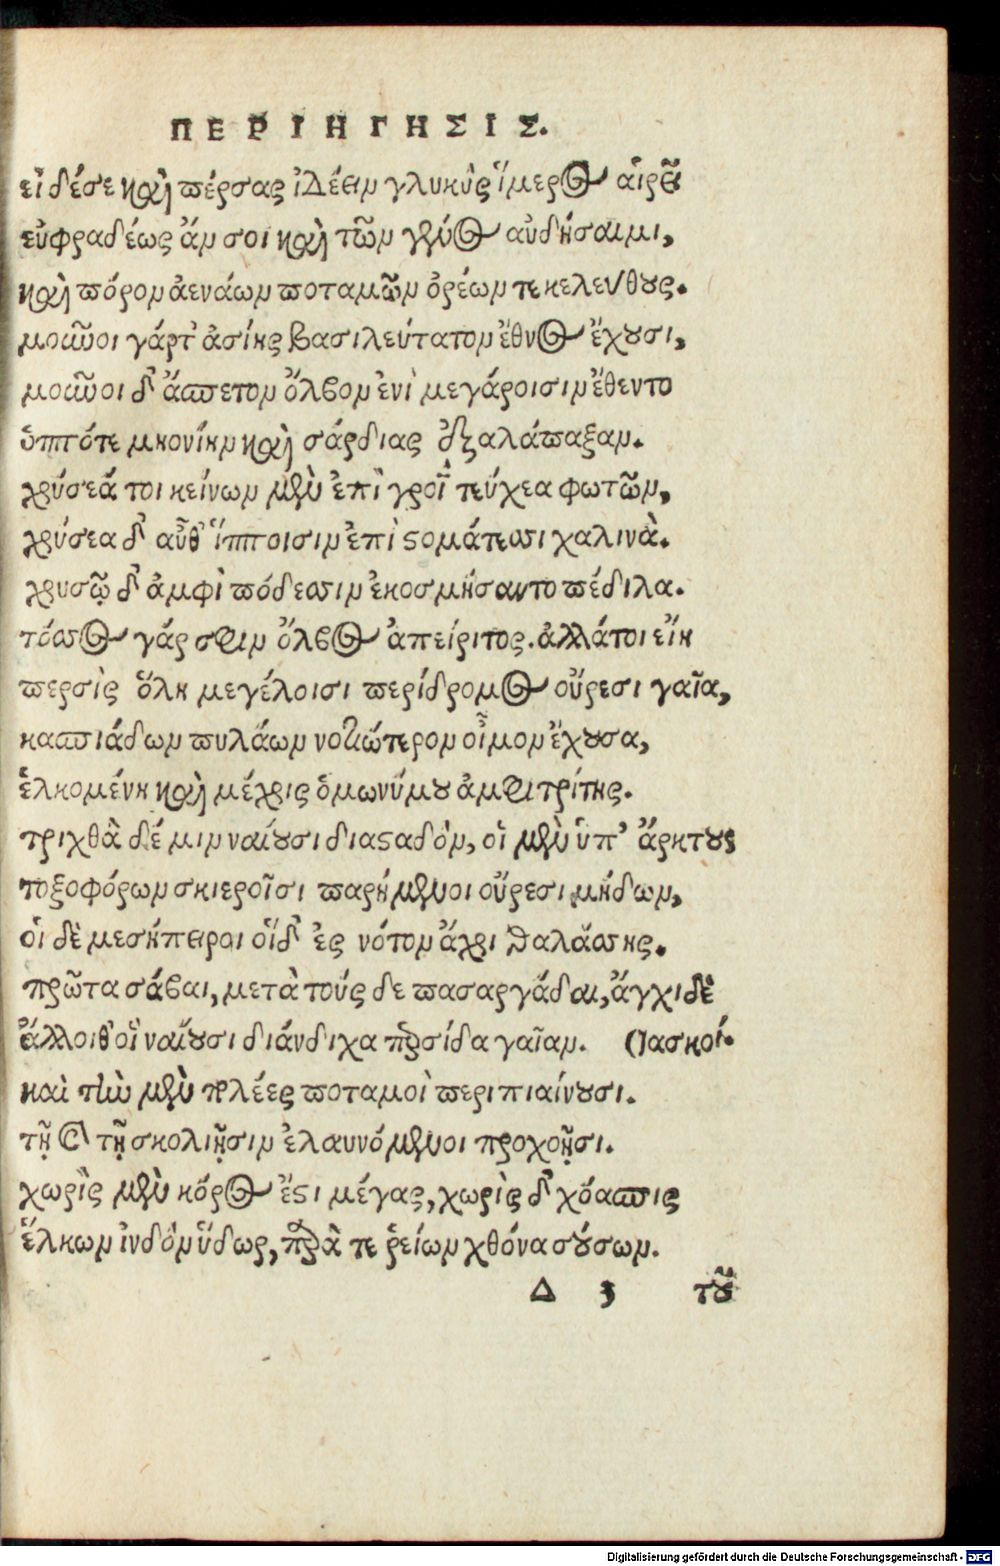 ΠΕΡΙΗΓΗΣΙΣ.
εἰ δέ σε καὶ πέρσας ἰδέειν γλυκὺς ἵμερος αἱρεῖ
εὐφραδέως ἄν σοι καὶ τῶν γένος αὐδήσαιμι,
καὶ πόρον ἀενάων ποταμῶν ὀρέων τε κελεύθους.
μοῦνοι γάρ τ' ἀσίης βασιλεύτατον ἔθνος ἔχουσι,
μοῦνοι δ' ἄσπετον ὄλβον ἐνὶ μεγάροισιν ἔθεντο
ὁππότε μηονίην καὶ σάρδιας ἐξαλάπαξαν.
χρύσεά τοι κείνων μὲν ἐπὶ χροῒ τεύχεα φωτῶν,
χρύσεα δ' αὖθ' ἵπποισιν ἐπὶ στομάτεσσι χαλινὰ.
χρυσῷ δ' ἀμφὶ πόδεσσιν ἐκοσμήσαντο πέδιλα.
τόσσος γάρ σφιν ὄλβος ἀπείριτος. ἀλλά τοι εἴη
περσὶς ὅλη μεγέλοισι περίδρομος οὔρεσι γαῖα,
κασπιάδων πυλάων νοτιώτερον οἶμον ἔχουσα,
ἑλκομένη καὶ μέχρις ὁμωνύμου ἀμφιτρίτης.
τριχθὰ δέ μιν ναίουσι διασταδόν, οἱ μὲν ὑπ' ἄρκτους
τοξοφόρων σκιεροῖσι παρήμενοι οὔρεσι μήδων,
οἱ δὲ μεσήπειροι οἵδ' ἐς νότον ἄχρι θαλάσσης.
πρῶτα σάβαι, μετὰ τούς δε πασαργάδαι, ἄγχι δὲ
ἄλλοιθ' οἳ ναίουσι διάνδιχα περσίδα γαῖαν. (τασκοί.
καὶ τὴν μὲν πλέες ποταμοὶ περιπιαίνουσι.
τῇ καὶ τῇ σκολιῇσιν ἐλαυνόμενοι προχοῇσι.
χωρὶς μὲν κόρος ἔστι μέγας, χωρὶς δ' χόασπις
ἕλκων ἰνδὸν ὕδωρ, παρὰ τε ῥείων χθόνα σούσων.
Δ 3 τοῦ
Digitalisierung gefördert durch die Deutsche Forschungsgemeinschaft - DFG